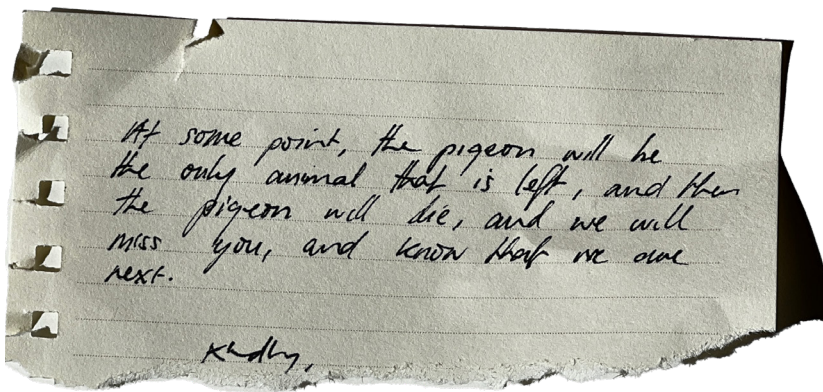 At some point, the pigeon will be
the only animal that is left, and then
the pigeon will die, and we will
miss you, and know that we are
next.
Kindly,